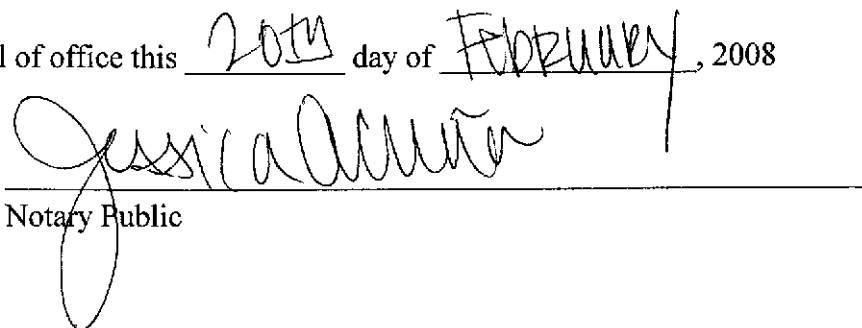 l of office this 20TH day of February, 2008
Jessica Acuña
Notary Public